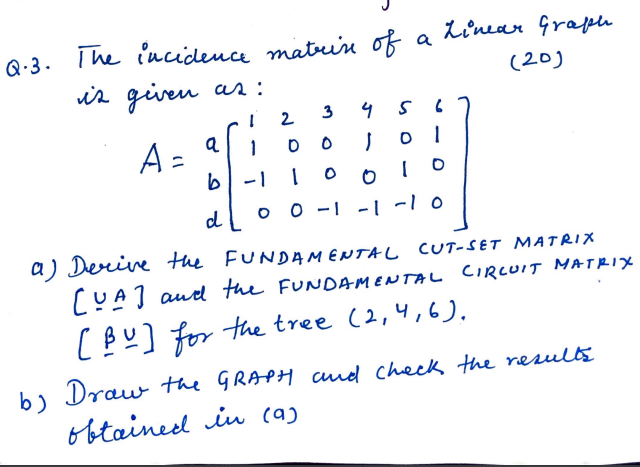 Q.3. The incidence matrix of a Linear Graph
is given as : (20)
1 2 3 4 5 6
a 1 0 0 1 0 1
A = b -1 1 0 0 1 0
d 0 0 -1 -1 -1 0
a) Derive the FUNDAMENTAL CUT-SET MATRIX
[U A] and the FUNDAMENTAL CIRCUIT MATRIX
[B U] for the tree (2,4,6).
b) Draw the GRAPH and check the results
obtained in (a)